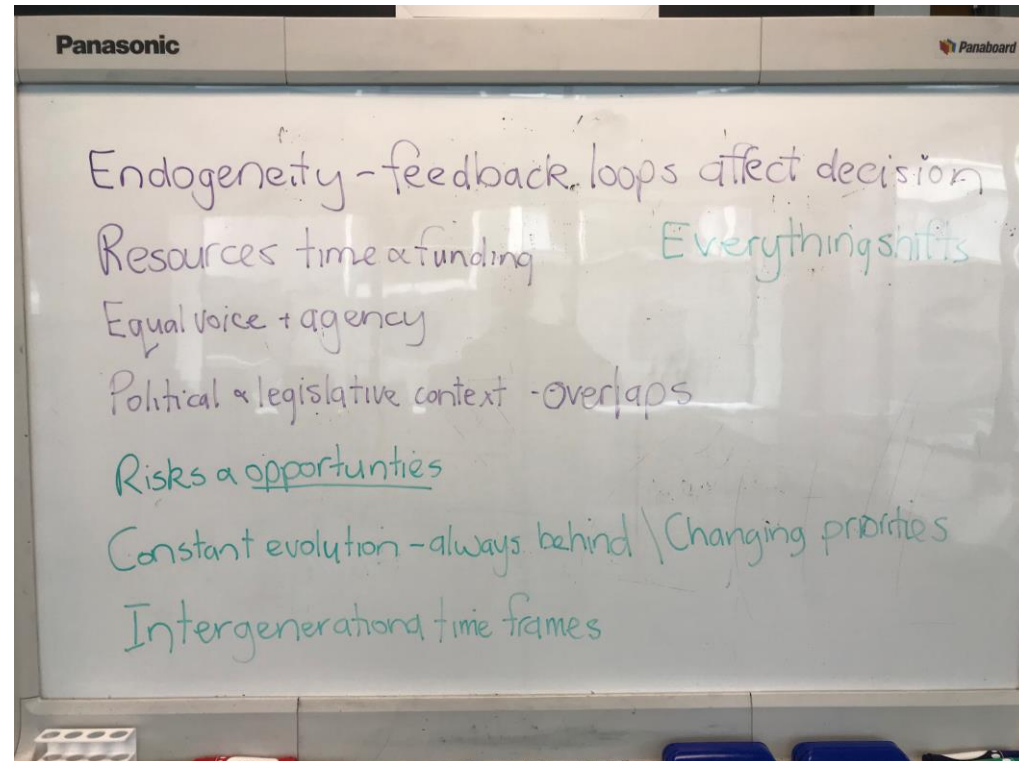 Panasonic
Panaboard
Endogeneity - feedback loops affect decision
Resources time & funding
Everything shifts
Equal voice + agency
Political & legislative context - overlaps
Risks & opportunties
Constant evolution - always behind \ Changing priorities
Intergenerationa time frames